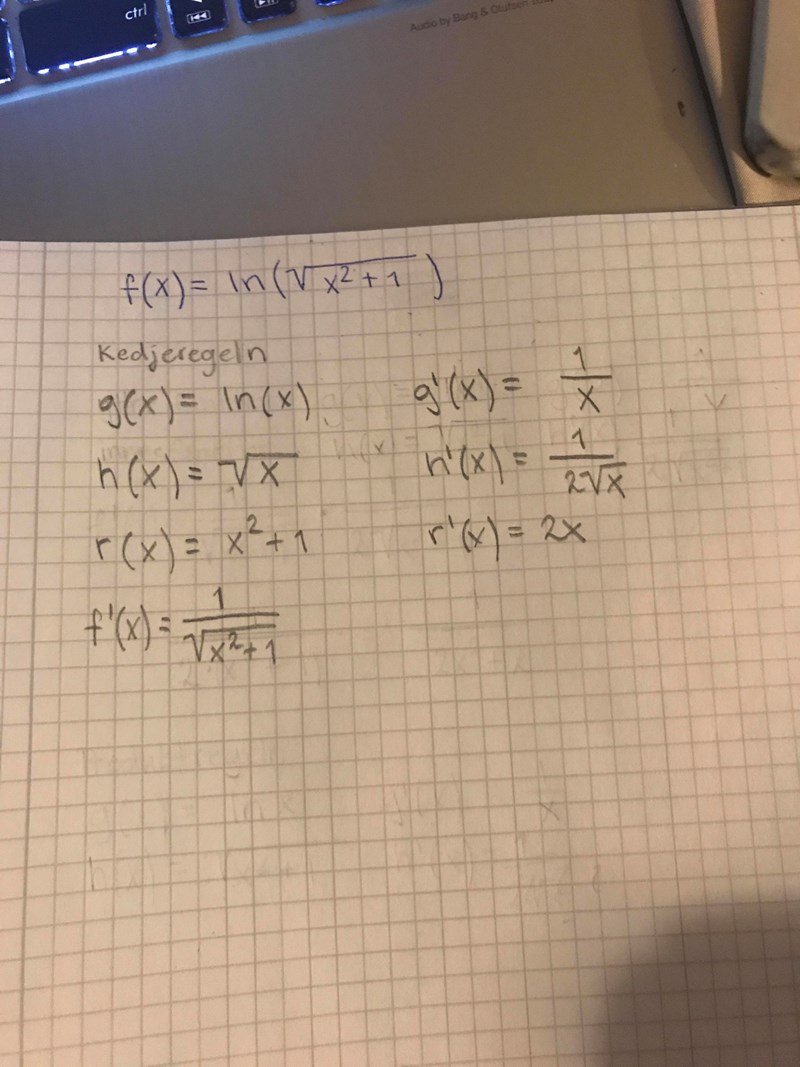 ctrl
Audio by Bang & Olufsen
f(x) = ln(√(x²+1))
Kedjeregeln
g(x) = ln(x) g'(x) = 1/x
h(x) = √x h'(x) = 1/(2√x)
r(x) = x²+1 r'(x) = 2x
f'(x) = 1/√(x²+1)